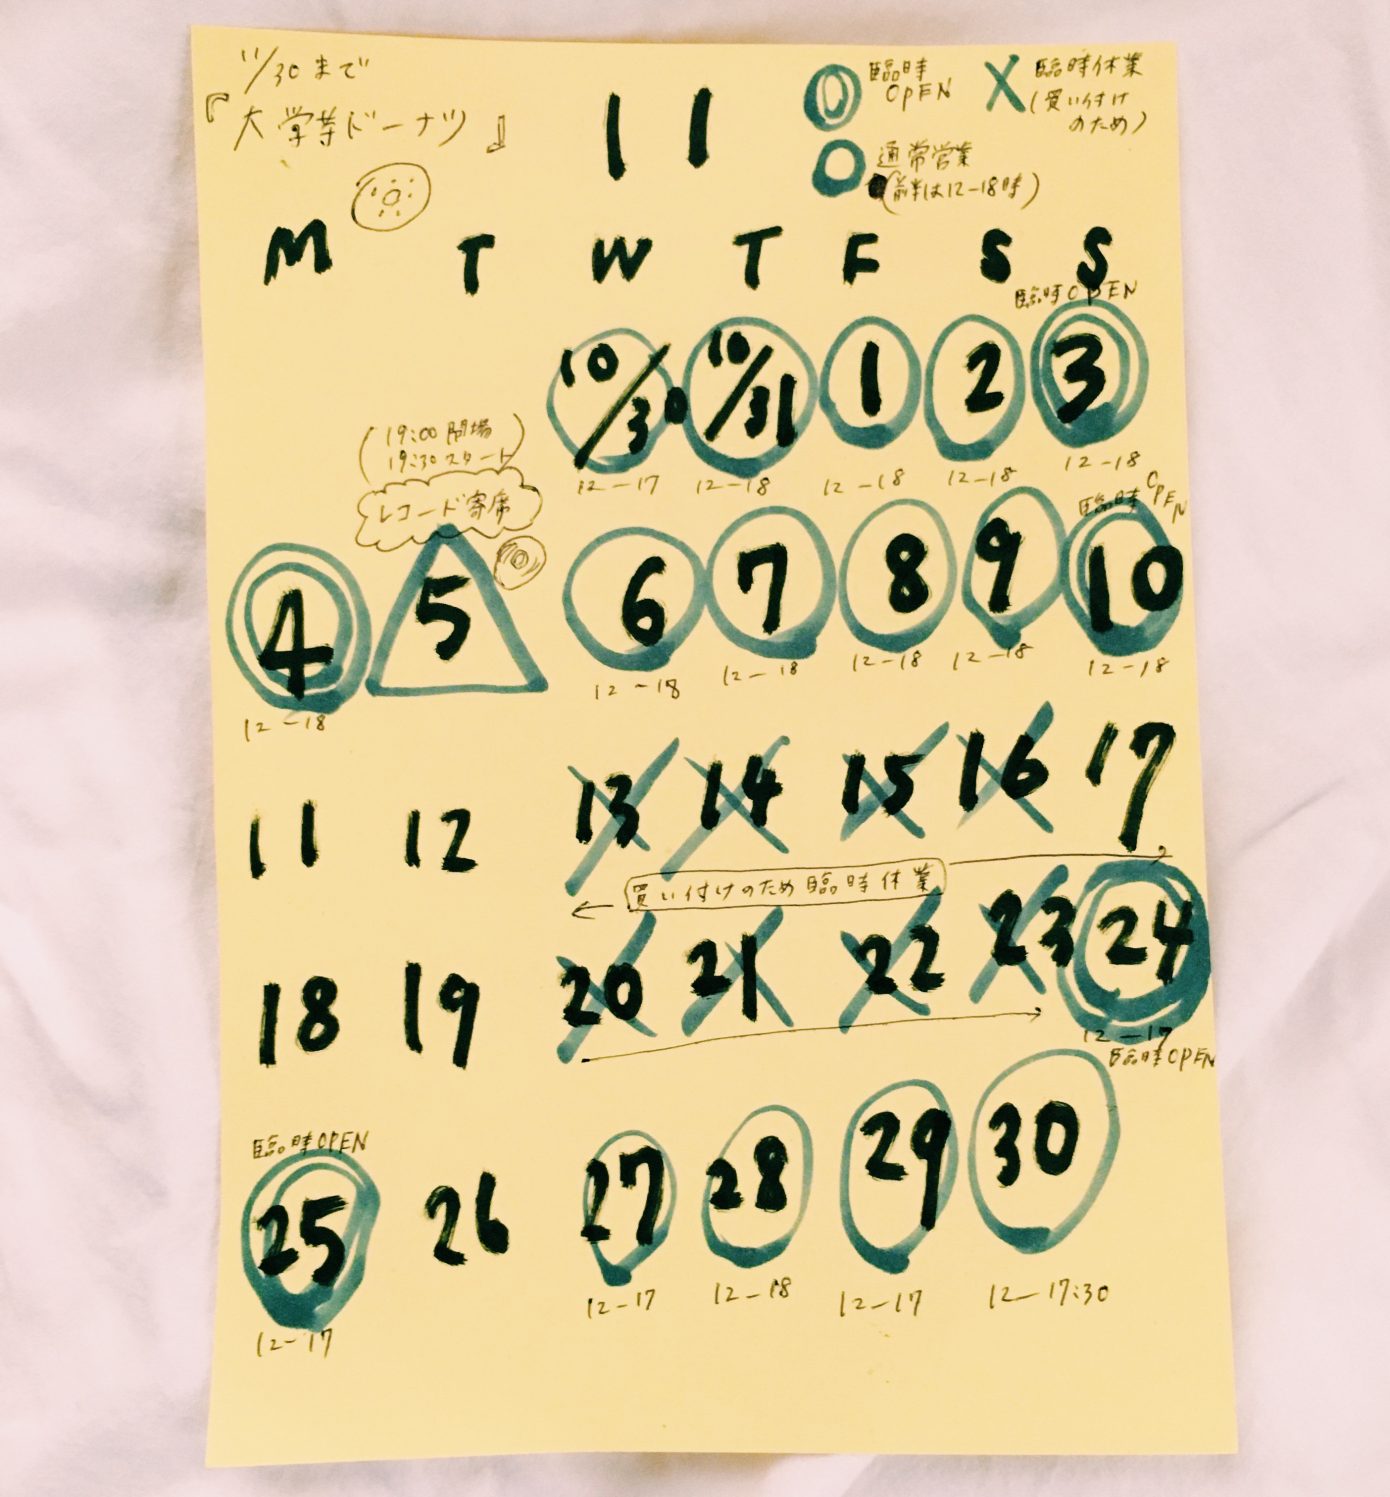 11/30まで
『大学芋ドーナツ』
11
臨時
OPEN
臨時休業
(買い付け
のため)
通常営業
(前半は12-18時)
M T W T F S S
臨時OPEN
10/30 10/31 1 2 3
12-17 12-18 12-18 12-18 12-18
(19:00 開場
19:30 スタート)
レコード寄席
臨時OPEN
4 5 6 7 8 9 10
12-18 12-18 12-18 12-18 12-18 12-18
11 12 13 14 15 16 17
買い付けのため臨時休業
18 19 20 21 22 23 24
12-17
臨時OPEN
臨時OPEN
25 26 27 28 29 30
12-17 12-17 12-18 12-17 12-17:30